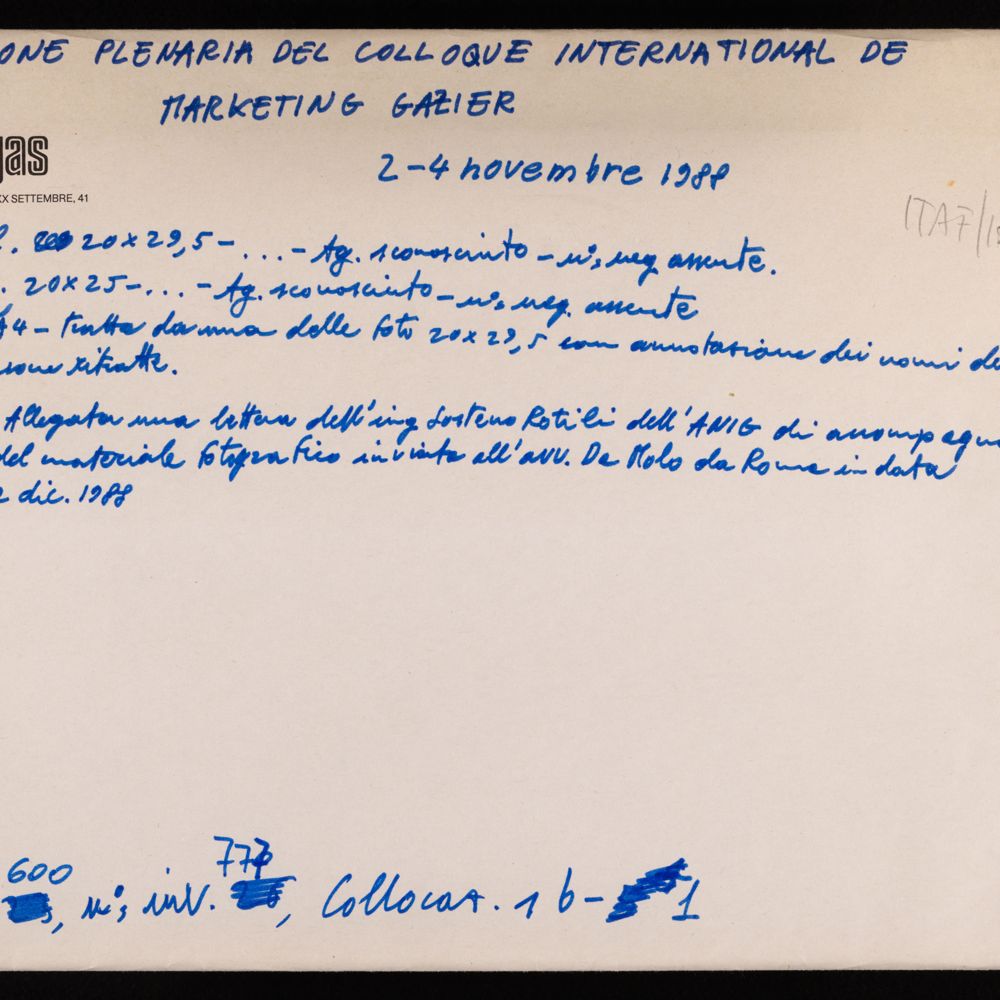 ONE PLENARIA DEL COLLOQUE INTERNATIONAL DE
MARKETING GAZIER
gas
2-4 novembre 1988
XX SETTEMBRE, 41
ITAF/
. 20x29,5-...- Ag. sconosciuto - n°, neg. assente.
. 20x25-...- Ag. sconosciuto - n°, neg. assente
A4 - tratta da una delle foto 20x29,5 con annotazione dei nomi de
sone ritratte.
Allegata una lettera dell'ing Sosteno Rotili dell'ANIG di accompagna
del materiale fotografico inviata all'avv. Da Molo da Roma in data
2 dic. 1988
600 777
, n°, inv. , Collocaz. 1 b - 1